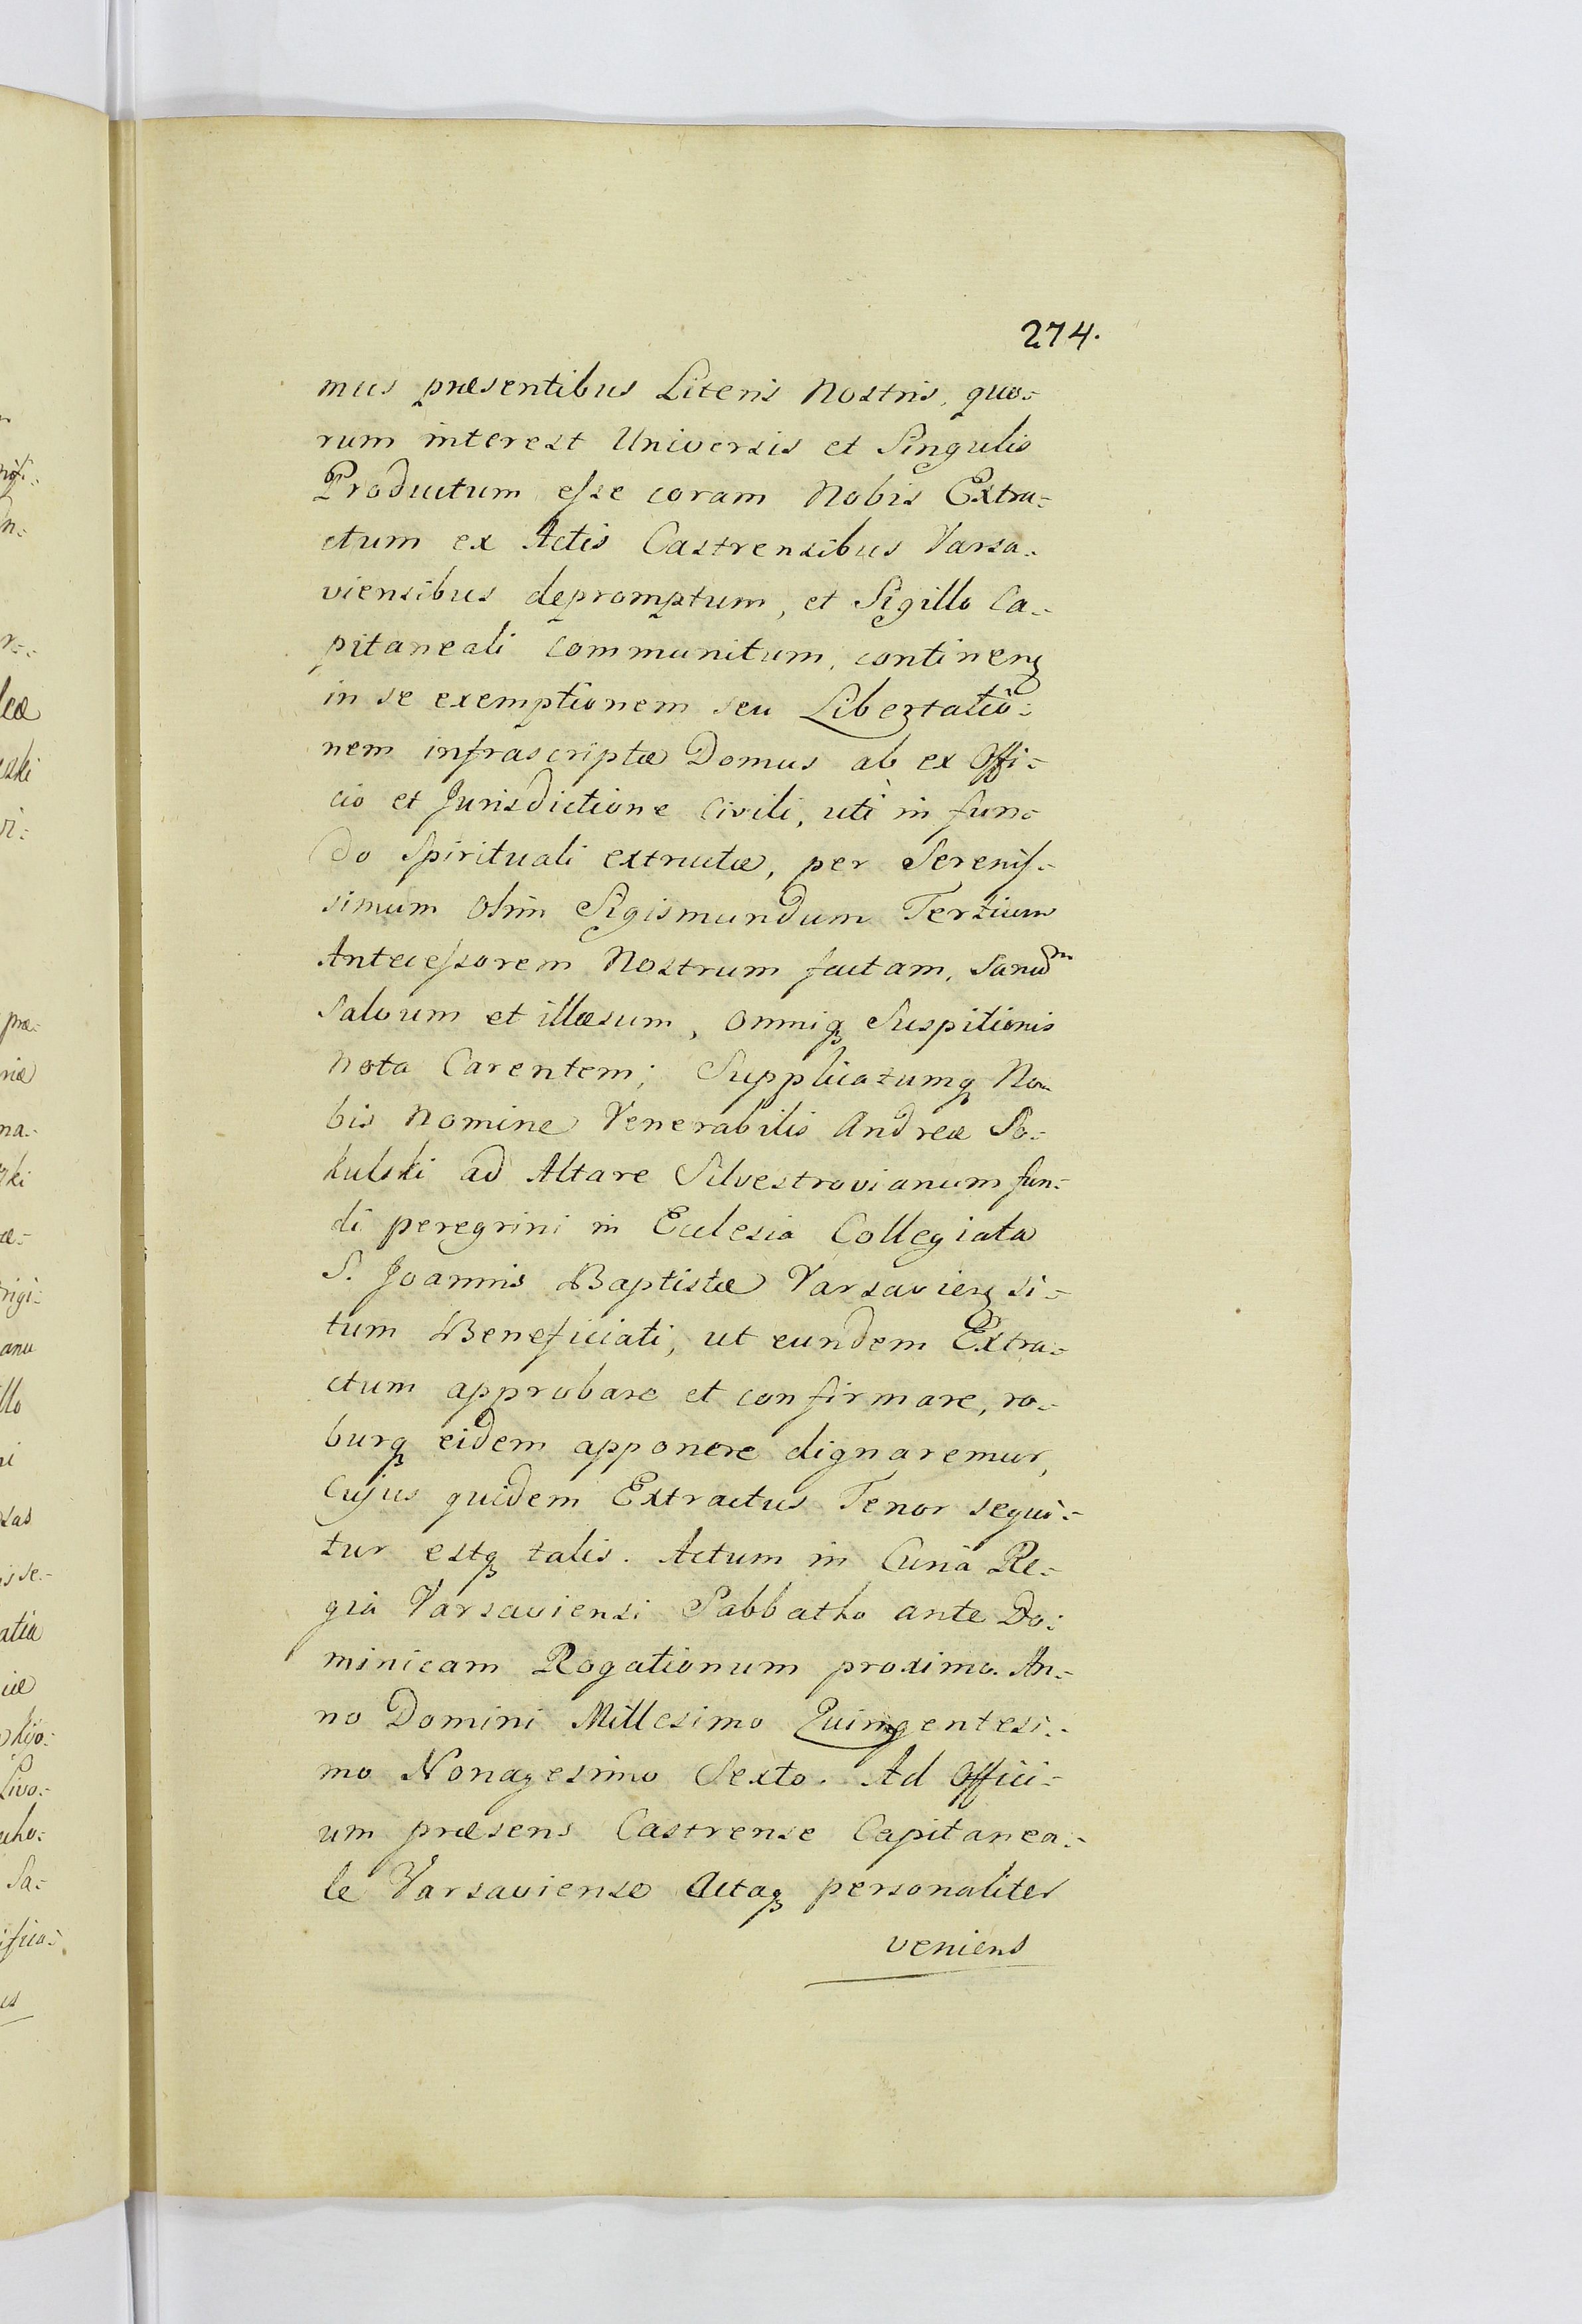 274.
mus præsentibus Literis Nostris, quo=
rum interest Universis et Singulis
Productum esse coram Nobis Extra=
ctum ex Actis Castrensibus Varsa=
viensibus depromptum, et Sigillo Ca=
pitaneali communitum, continenꝫ
in se exemptionem seu Libertatio=
nem infrascriptæ Domus ab ex Offi=
cio et Jurisdictione Civili, uti in fun=
do Spirituali extructæ, per Serenis=
simum Olim Sigismundum Tertium
Antecessorem Nostrum factam, Sanũ
Salvum et illæsum, omniqꝫ Suspitionis
nota Carentem; Supplicatumqꝫ No=
bis Nomine Venerabilis Andreæ So=
kulski ad Altare Silvestrovianum fun=
di peregrini in Ecclesia Collegiata
S. Joannis Baptistæ Varsavienꝫ si=
tum Beneficiati, ut eundem Extra=
ctum approbare et confirmare, ro=
burqꝫ eidem apponere dignaremur,
Cujus quidem Extractus Tenor sequi=
tur estqꝫ talis. Actum in Curia Re=
gia Varsaviensi Sabbatho ante Do=
minicam Rogationum proximo. An=
no Domini Millesimo Quingentesi=
mo Nonagesimo Sexto. Ad Offici=
um præsens Castrense Capitanea=
le Varsaviense Actaqꝫ personaliter
veniens